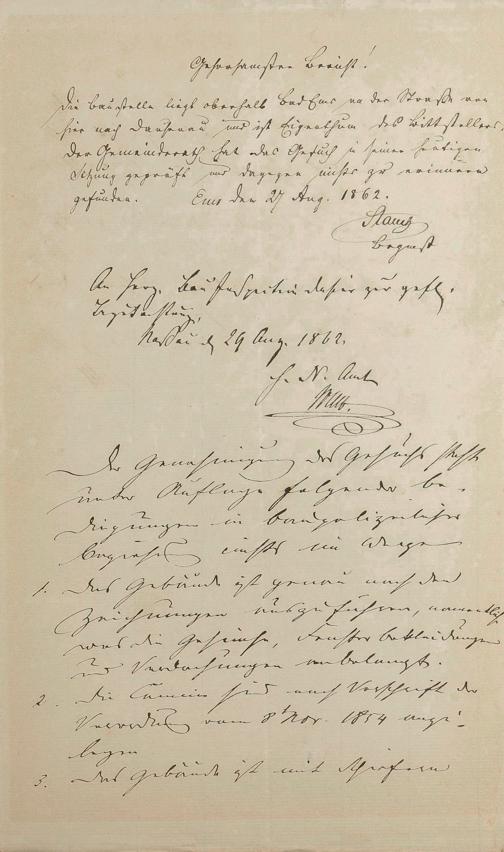 Gehorsamster Bericht!
Die Baustelle liegt oberhalb Bad Ems an der Straße von
hier nach Dausenau und ist Eigenthum des Bittstellers,
Der Gemeinderath hat das Gesuch in seiner heutigen
Sitzung geprüft und dagegen nichts zu erinnern
gefunden. Ems den 27 Aug. 1862.
An Herz. Bauinspection dahier zur gefl.
Begutachtung.
Nassau d. 29 Aug. 1862.
H. N. Amt
Der Genehmigung des Gesuchs steht
unter Auflage folgender Be-
dingungen in baupolizeilicher
nichts im Wege
1. Das Gebäude ist genau nach den
Zeichnungen auszuführen, namentlich
was die Gesimse, Fensterbekleidungen
und Verdachungen anbelangt.
2. Die Camine sind nach Vorschrift der
Verordnung vom 8t Nov. 1854 anzu-
legen
3. Das Gebäude ist mit Schiefern